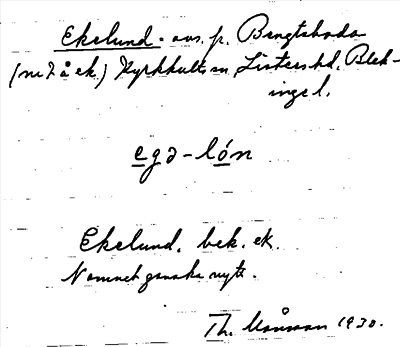 Ekelund. avs. p. Bengtsboda
(nr 7 å ek.) Kyrkhults sn Listers hd. Blek-
inge l.
egə-lón
Ekelund, bek. ek.
Namnet ganska nytt.
Th. Månsson 1930.